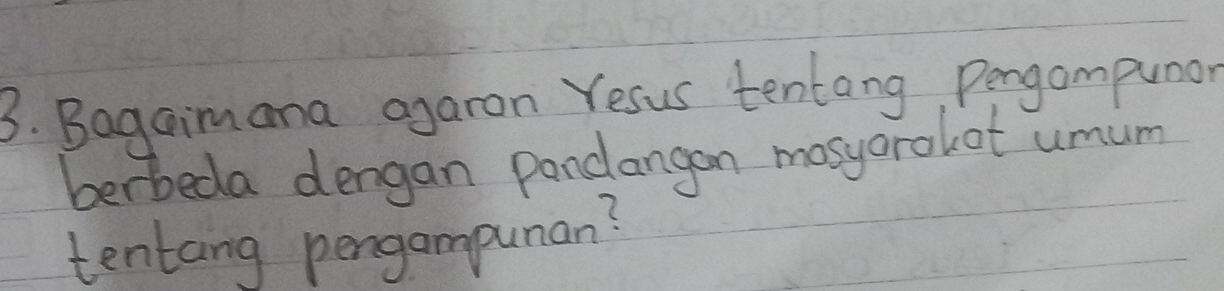 3. Bagaimana agaran Yesus tentang Pengampunan
berbeda dengan Pandangan masyarakat umum
tentang pengampunan?